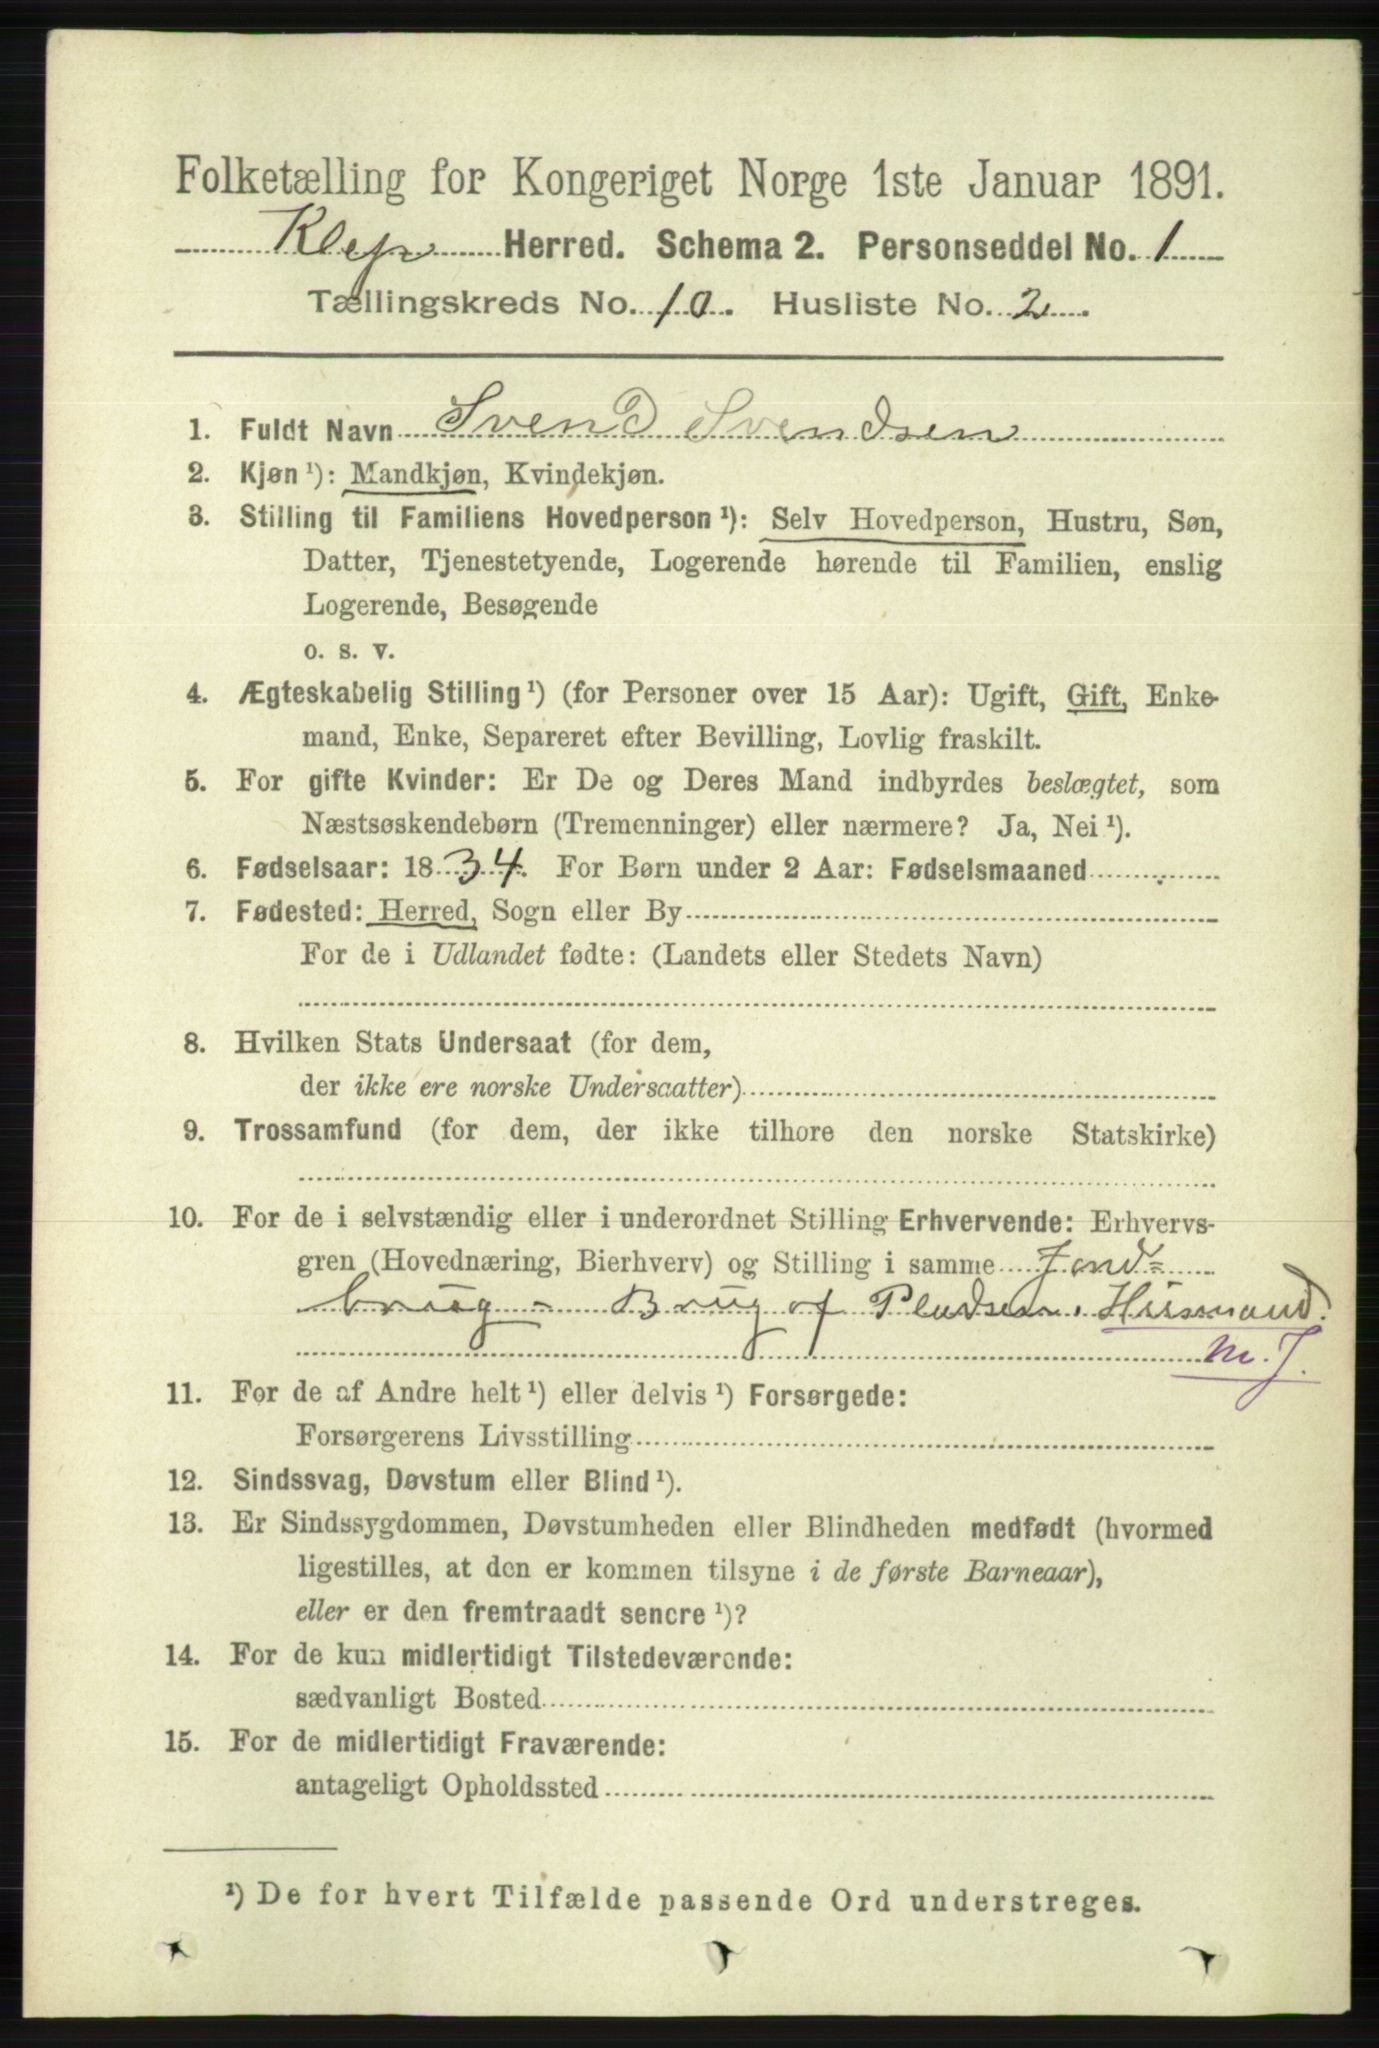 Folketælling for Kongeriget Norge 1ste Januar 1891.
Klep Herred. Schema 2. Personseddel No. 1
Tællingskreds No. 10. Husliste No. 2.
1. Fuldt Navn Svend Svendsen
2. Kjøn ¹): Mandkjøn, Kvindekjøn.
3. Stilling til Familiens Hovedperson ¹): Selv Hovedperson, Hustru, Søn,
Datter, Tjenestetyende, Logerende hørende til Familien, enslig
Logerende, Besøgende
o. s. v.
4. Ægteskabelig Stilling ¹) (for Personer over 15 Aar): Ugift, Gift, Enke-
mand, Enke, Separeret efter Bevilling, Lovlig fraskilt.
5. For gifte Kvinder: Er De og Deres Mand indbyrdes beslægtet, som
Næstsøskendebørn (Tremenninger) eller nærmere? Ja, Nei ¹).
6. Fødselsaar: 1834. For Børn under 2 Aar: Fødselsmaaned
7. Fødested: Herred, Sogn eller By
For de i Udlandet fødte: (Landets eller Stedets Navn)
8. Hvilken Stats Undersaat (for dem,
der ikke ere norske Undersaatter)
9. Trossamfund (for dem, der ikke tilhøre den norske Statskirke)
10. For de i selvstændig eller i underordnet Stilling Erhvervende: Erhvervs-
gren (Hovednæring, Bierhverv) og Stilling i samme Jord=
brug - Brug af Pladsen. Husmand.
m. J.
11. For de af Andre helt ¹) eller delvis ¹) Forsørgede:
Forsørgerens Livsstilling
12. Sindssvag, Døvstum eller Blind ¹).
13. Er Sindssygdommen, Døvstumheden eller Blindheden medfødt (hvormed
ligestilles, at den er kommen tilsyne i de første Barneaar),
eller er den fremtraadt senere ¹)?
14. For de kun midlertidigt Tilstedeværende:
sædvanligt Bosted
15. For de midlertidigt Fraværende:
antageligt Opholdssted
¹) De for hvert Tilfælde passende Ord understreges.